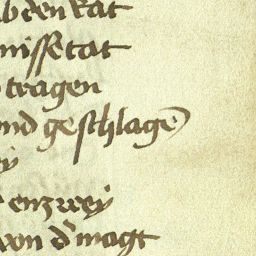 ab den rat
missetat
tragen
und geschlagē
en zwey
von d' magt